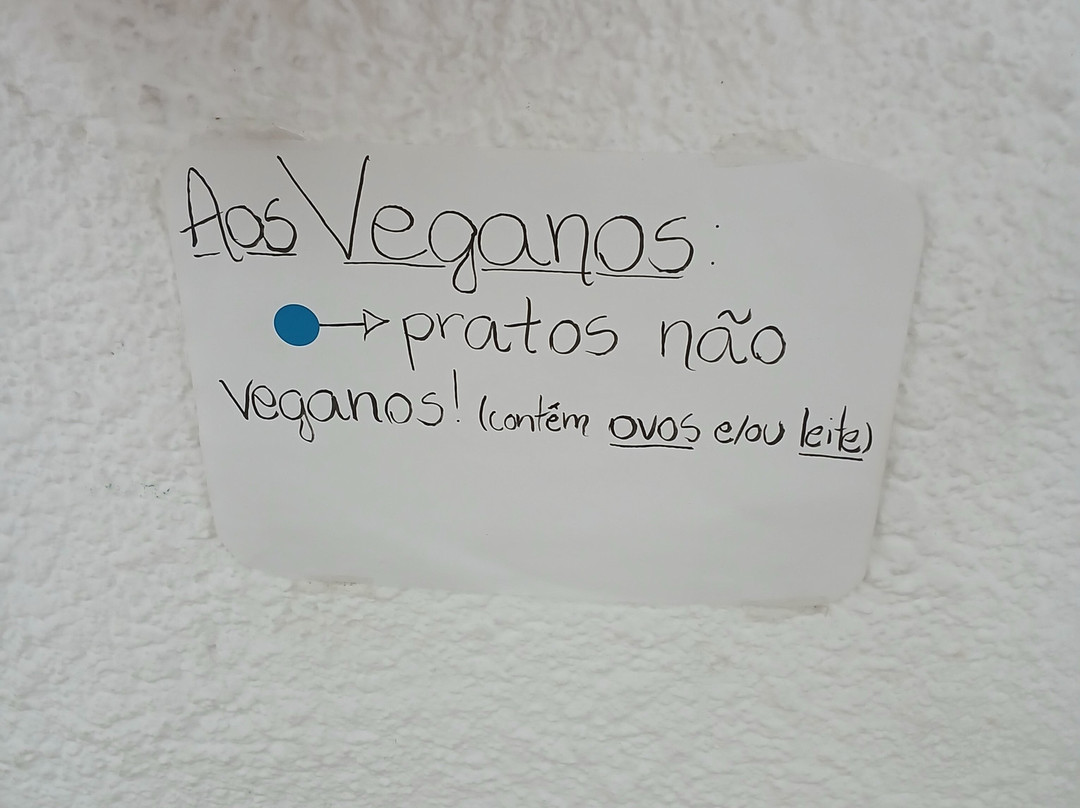 Aos Veganos:
pratos não
veganos! (contêm ovos e/ou leite)